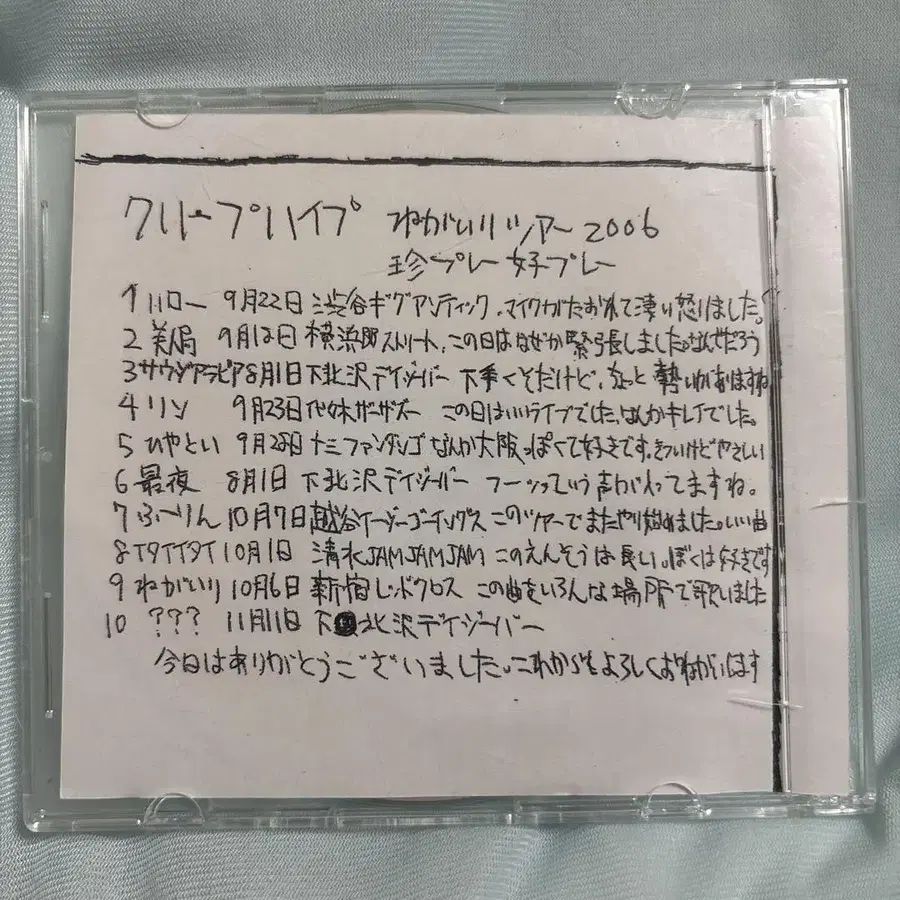 クリープハイプ ねがいりツアー2006
珍プレー好プレー
1 ハロー 9月22日 渋谷ギグアンティック、マイクがたおれて凄い怒りました。
2 美人局 9月12日 横浜 ストリート、この日はなぜか緊張しました。なんでだろう
3 サウジアラビア 8月1日 下北沢デイジーバー 下手くそだけど、 勢いがありますね
4 リンゴ 9月23日 代々木ザーザズー この日はいいライブでした。なんかキレイでした。
5 ひやとい 9月28日 十三ファンダンゴ なんか大阪っぽくて好きです。きついけどやさしい
6 最夜 8月1日 下北沢デイジーバー フーッっていう声が入ってますね。
7 ふーりん 10月7日 越谷イージーゴーイングス このツアーでまたやり始めました。いい曲
8 イタイイタイ 10月1日 清水JAMJAMJAM このえんそうは長い。ぼくは好きです
9 ねがいり 10月6日 新宿レッドクロス この曲をいろんな場所で歌いました
10 ??? 11月11日 下北沢デイジーバー
今日はありがとうございました。これからもよろしくおねがいします